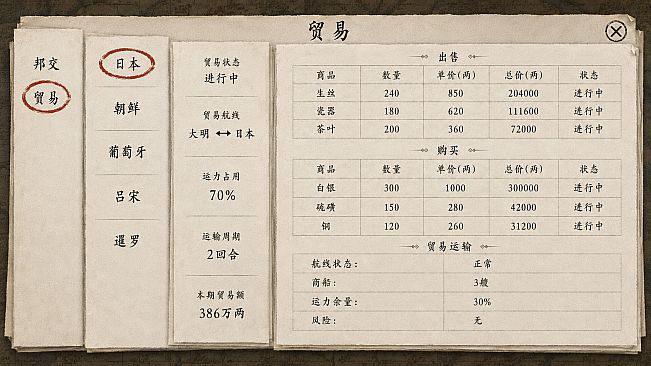 贸易
邦交
貿易
日本
朝鲜
葡萄牙
吕宋
暹罗
贸易状态
进行中
贸易航线
大明 ↔ 日本
运力占用
70%
运输周期
2回合
本期贸易额
386万两
出售
商品 数量 单价(两) 总价(两) 状态
生丝 240 850 204000 进行中
瓷器 180 620 111600 进行中
茶叶 200 360 72000 进行中
购买
商品 数量 单价(两) 总价(两) 状态
白银 300 1000 300000 进行中
硫磺 150 280 42000 进行中
铜 120 260 31200 进行中
贸易运输
航线状态: 正常
商船: 3艘
运力余量: 30%
风险: 无